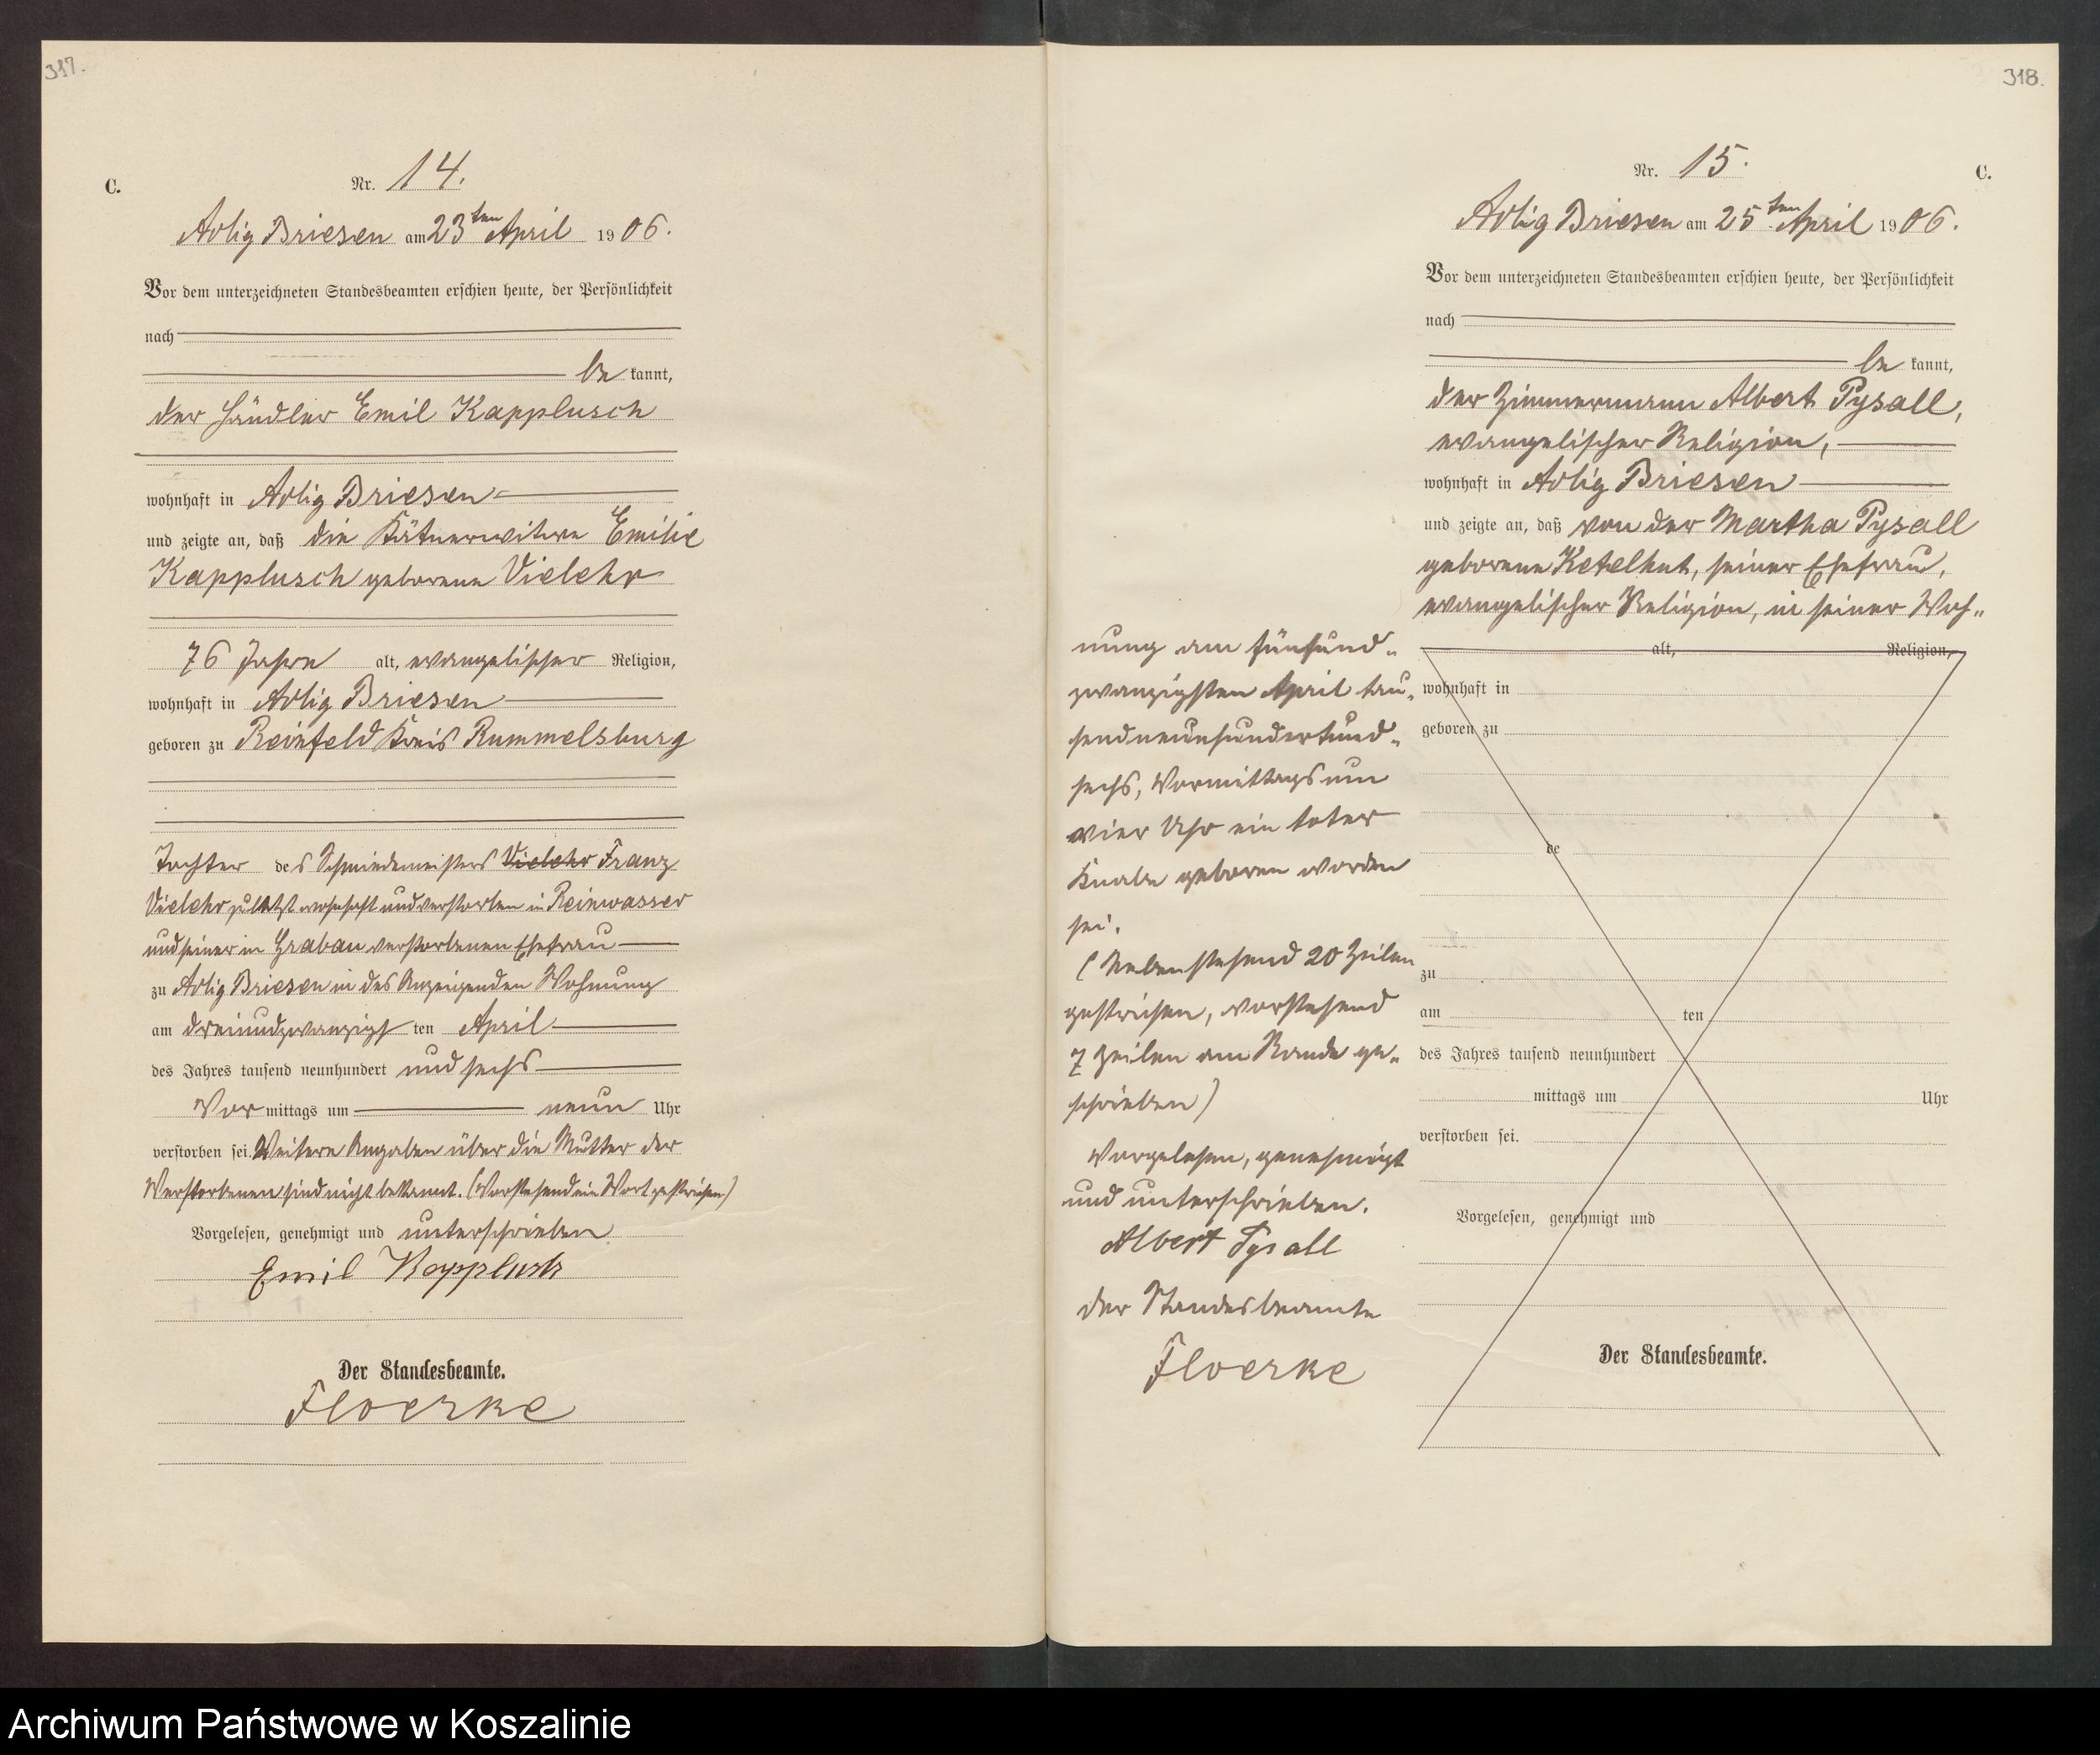 317.
C.
Nr. 14.
Adlig Briesen am 23ten April 1906.
Vor dem unterzeichneten Standesbeamten erschien heute, der Persönlichkeit
nach
be kannt,
der Händler Emil Kapplusch
wohnhaft in Adlig Briesen
und zeigte an, daß die Kätnerwitwe Emilie
Kapplusch geborene Vielehr
76 Jahre alt, evangelischer Religion,
wohnhaft in Adlig Briesen
geboren zu Reinfeld Kreis Rummelsburg
Tochter des Schmiedemeisters Vielehr Franz
Vielehr zuletzt wohnhaft und verstorben in Reinwasser
und seiner in Grabau verstorbenen Ehefrau
zu Adlig Briesen in des Anzeigenden Wohnung
am dreiundzwanzigsten April
des Jahres tausend neunhundert und sechs
Vormittags um neun Uhr
verstorben sei. Weitere Angaben über die Mutter der
Verstorbenen sind nicht bekannt. (Vorstehend ein Wort gestrichen)
Vorgelesen, genehmigt und unterschrieben
Emil Kapplusch
Der Standesbeamte.
Floerke
318.
C.
Nr. 15.
Adlig Briesen am 25ten April 1906.
Vor dem unterzeichneten Standesbeamten erschien heute, der Persönlichkeit
nach
be kannt,
der Zimmermann Albert Pysall,
evangelischer Religion,
wohnhaft in Adlig Briesen
und zeigte an, daß von der Martha Pysall
geborene Ketelhut, seiner Ehefrau,
evangelischer Religion, in seiner Woh-
nung am fünfund-
zwanzigsten April tau-
sendneunhundertund-
sechs, Vormittags um
vier Uhr ein toter
Knabe geboren worden
sei.
(Nebenstehend 20 Zeilen
gestrichen, vorstehend
7 Zeilen am Rande ge-
schrieben)
Vorgelesen, genehmigt
und unterschrieben.
Albert Pysall
der Standesbeamte
Floerke
alt, Religion,
wohnhaft in
geboren zu
de
zu
am ten
des Jahres tausend neunhundert
mittags um Uhr
verstorben sei.
Vorgelesen, genehmigt und
Der Standesbeamte.
Archiwum Państwowe w Koszalinie